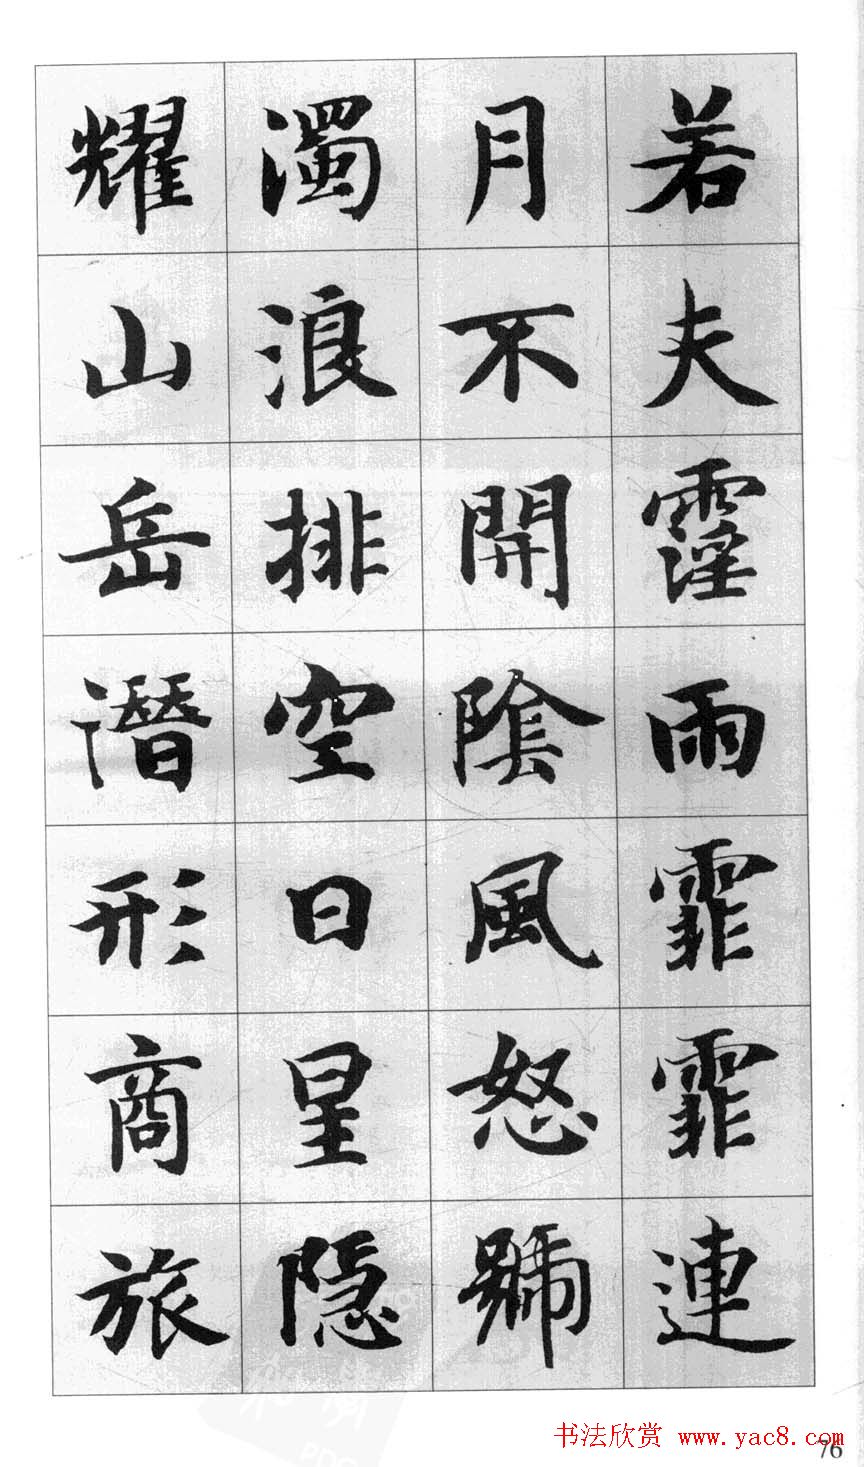 若夫霪雨霏霏連
月不開陰風怒號
濁浪排空日星隐
耀山岳潛形商旅
书法欣赏 www.yac8.com
76